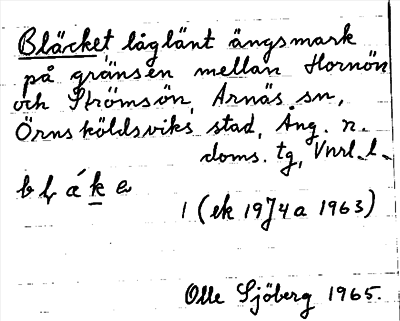 Bläcket låglänt ängsmark
på gränsen mellan Hornön
och Strömsön, Arnäs sn,
Örnsköldsviks stad, Ång. n.
doms. tg, Vnrl. l.
1 (ek 19J4a 1963)
Olle Sjöberg 1965.